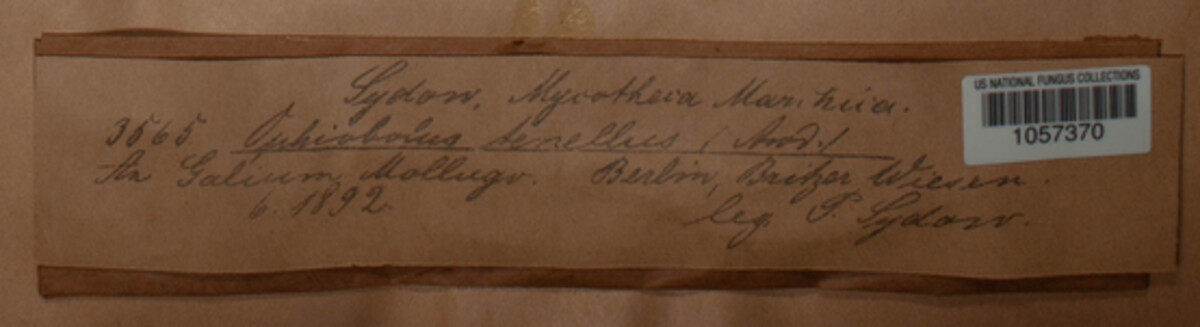 Sydow, Mycotheca Marchica.
3565 Ophiobolus tenellus (Awd.)
An Galium Mollugo. Berlin, Britzer Wiesen.
6. 1892.
leg. P. Sydow.
US NATIONAL FUNGUS COLLECTIONS
1057370